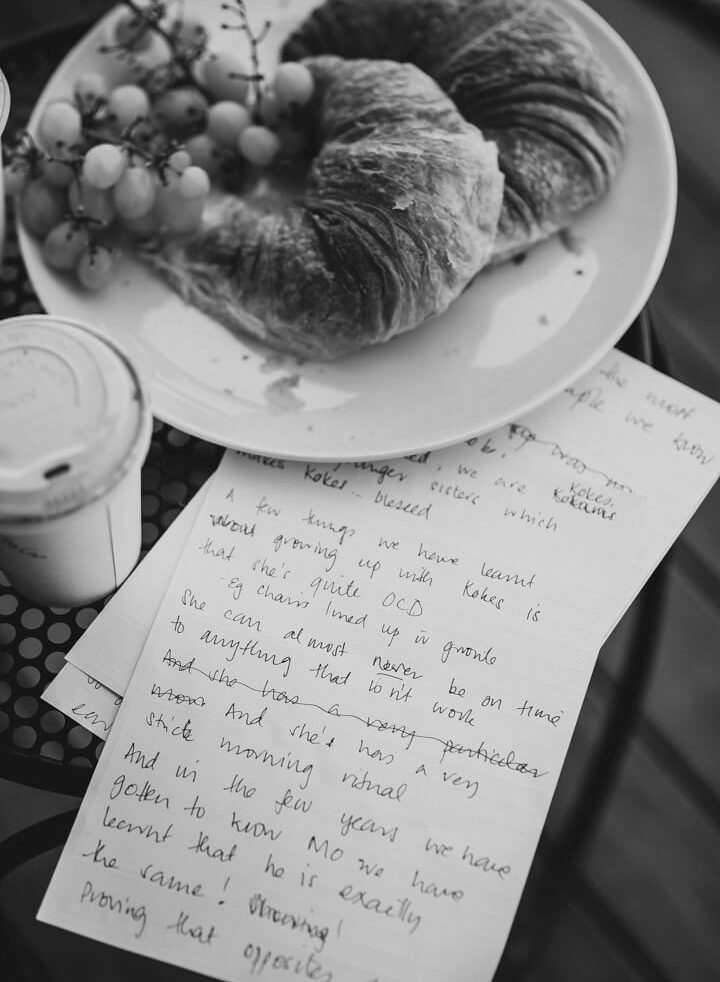 the most
people we know
we are Kokes,
makes Kokes - blessed
younger sisters which
A few things we have learnt
about growing up with Kokes is
that she's quite OCD
Eg chairs lined up in
She can almost never be on time
to anything that isn't work
And she has a very particular
And she's has a very
strick morning ritual
And in the few years we have
gotten to know Mo we have
learnt that he is exactly
the same!
Proving that opposites